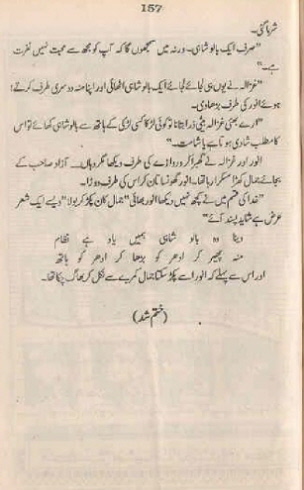 157
شرما گئی۔
"صرف ایک بالو شاہی۔ ورنہ میں سمجھوں گا کہ آپ کو مجھ سے محبت نہیں نفرت
ہے۔"
غزالہ نے یوں ہی لجائے لجائے ایک بالو شاہی اٹھائی اور اپنا منہ دوسری طرف کرتے
ہوئے انور کی طرف بڑھا دی۔
"ارے بھئی غزالہ بیٹی ذرا بتانا تو کوئی لڑکا کسی لڑکی کے ہاتھ سے بالو شاہی کھائے تو اس
کا مطلب شادی ہوتا ہے یا شامت۔"
انور اور غزالہ نے گھبرا کر دروازے کی طرف دیکھا مگر وہاں۔۔ آزاد صاحب کے
بجائے جمال کھڑا مسکرا رہا تھا۔ انور گھونسا تان کر اس کی طرف دوڑا۔
"خدا کی قسم میں نے کچھ نہیں دیکھا انور بھائی" جمال کان پکڑ کر بولا" ویسے ایک شعر
عرض ہے شاید پسند آئے"
دینا وہ بالو شاہی ہمیں یاد ہے نظام
منہ پھیر کر ادھر کو بڑھا کر ادھر کو ہاتھ
اور اس سے پہلے کہ انور اسے پکڑ سکتا جمال کمرے سے نکل کر بھاگ چکا تھا۔
(ختم شد)